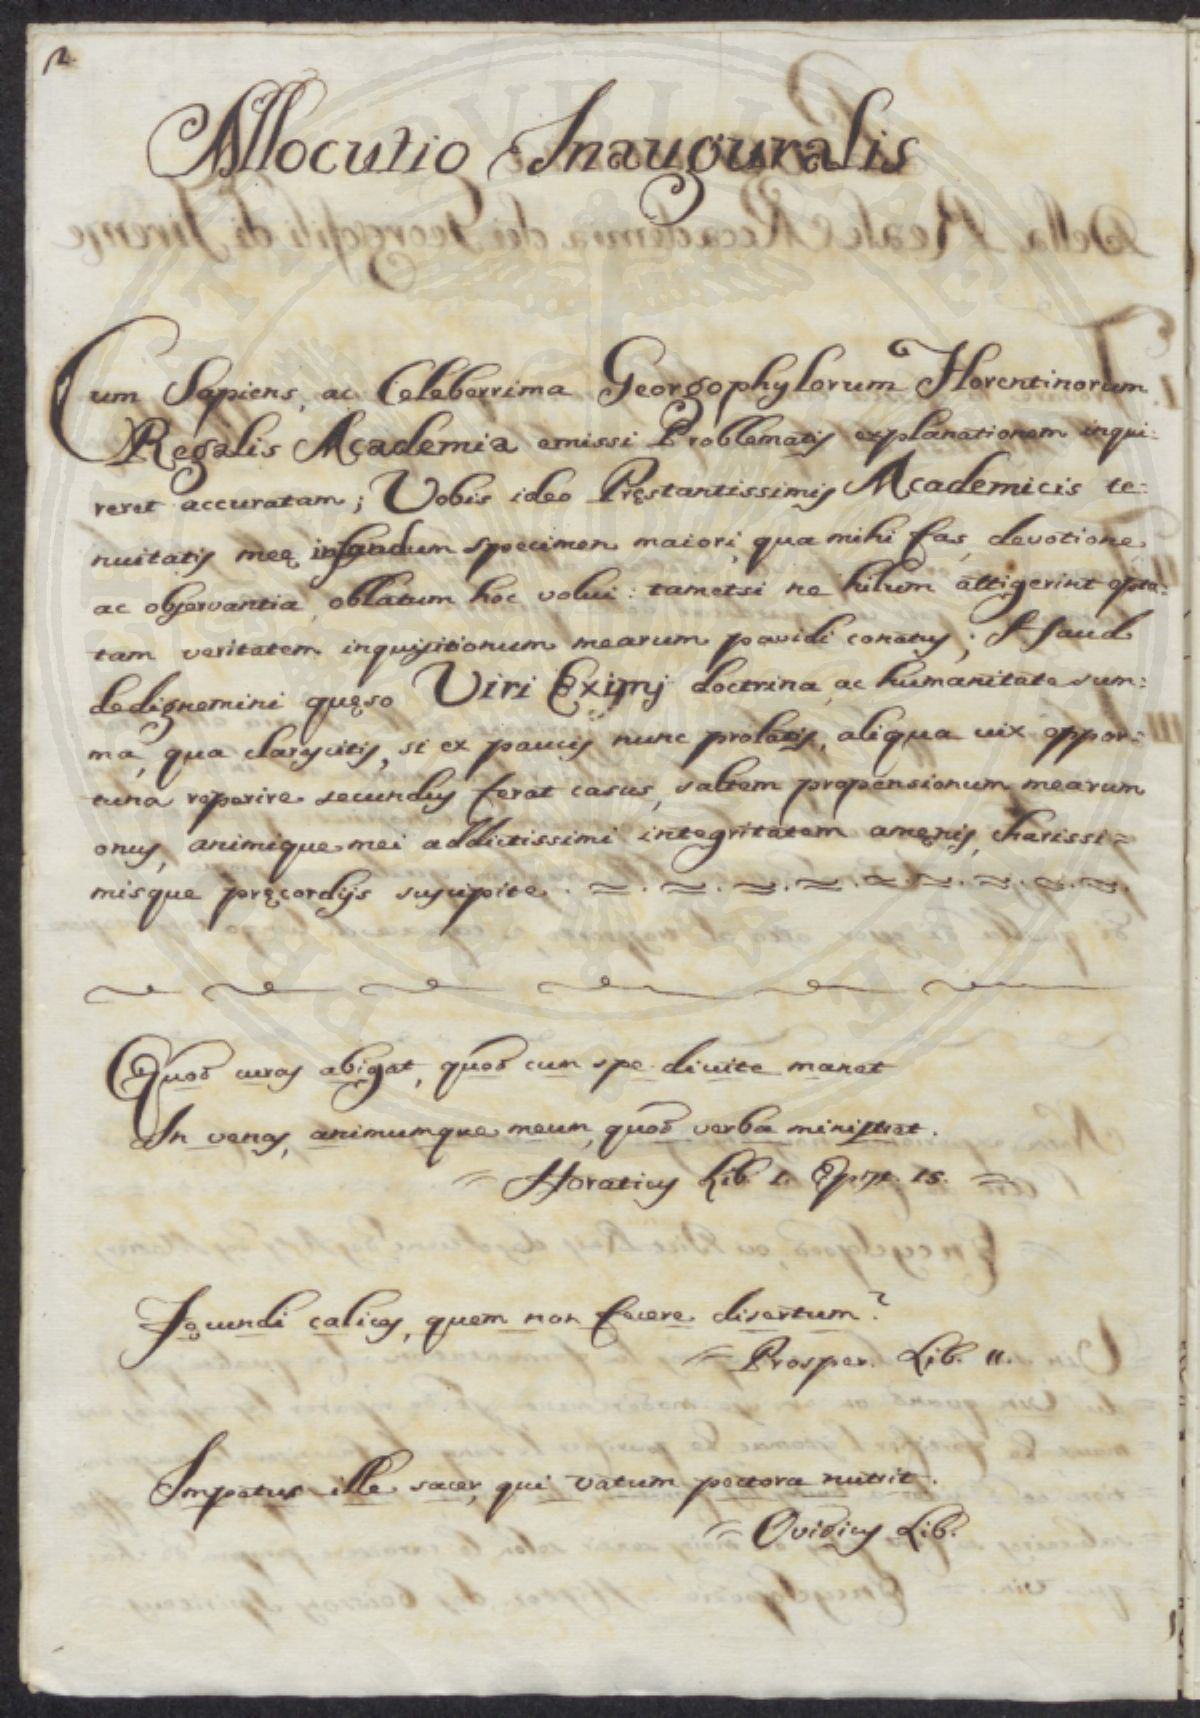 2.
Allocutio Inauguralis
Cum Sapiens, ac Celeberrima Georgophylorum Florentinorum
Regalis Academia emissi Problematis explanationem inqui:
reret accuratam; Vobis ideo Pręstantissimis Academicis te:
nuitatis meę specimen maiori, qua mihi fas, devotione
ac observantia, oblatum hoc volui: tametsi ne hilum attigerint opta:
tam veritatem inquisitionum mearum pavidi conatus; Haud
dedignemini quęso Viri Eximij doctrina, ac humanitate sum:
ma, qua clarescitis, si ex paucis nunc prolatis, aliqua vix oppor:
tuna reperire secundus ferat casus, saltem propensionum mearum
onus, animique mei addictissimi integritatem amęnis, charissi=
misque pręcordijs suscipite.
Quod curas abigat, quod cum spe divite manet
In venas, animumque meum, quod verba ministret.
Horatius Lib. I. Epist. 15.
Fęcundi calices, quem non fecere disertum?
Prosper. Lib. II.
Impetus ille sacer, qui vatum pectora nutrit.
Ovidius Lib.